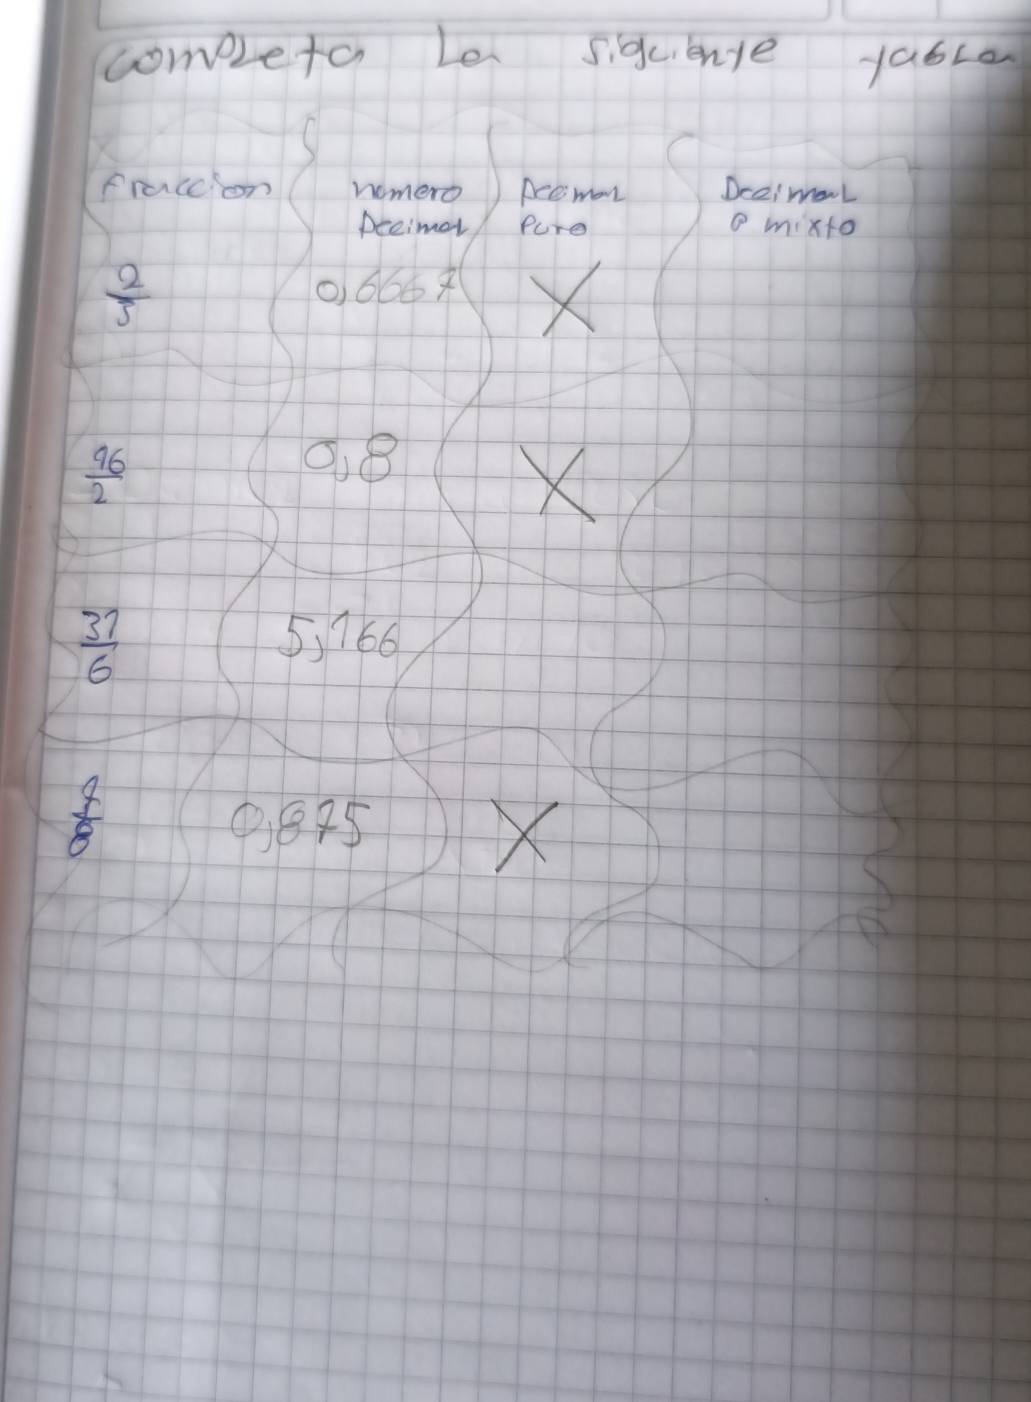 completa La siguiente tabla
Fraccion numero Decimal Decimal
Decimal Puro o mixto
2/3 0,6667 X
16/2 0,8 X
31/6 5,166
7/8 0,875 X